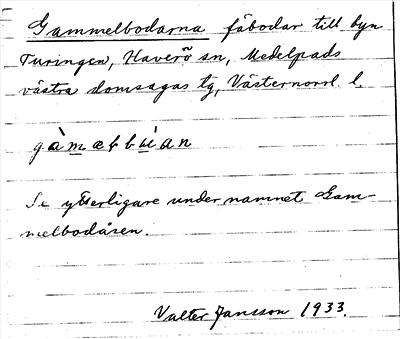 Gammelbodarna fäbodar till byn
Turingen, Haverö sn, Medelpads
västra domsagas tg, Västernorrl. l.
gàmæbbùan
Se ytterligare under namnet Gam-
melbodåsen.
Valter Jansson 1933.